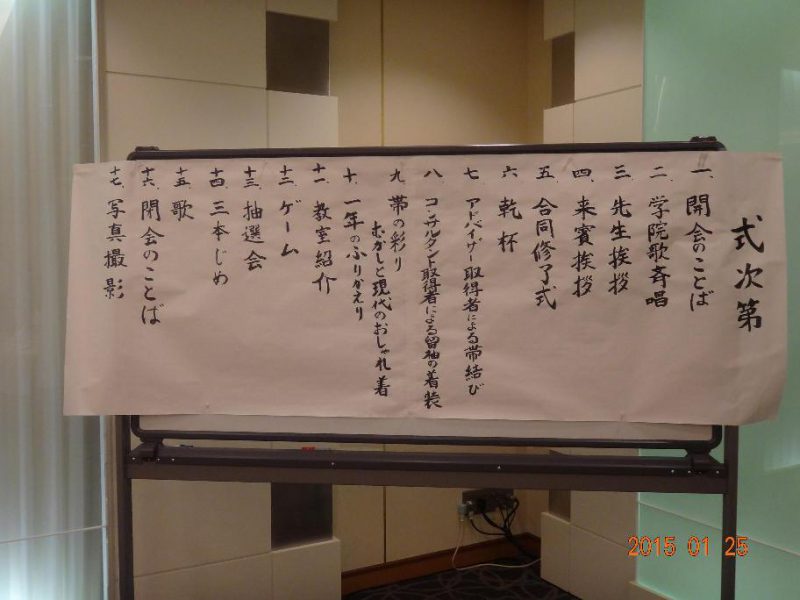 式次第
一、開会のことば
二、学院歌斉唱
三、先生挨拶
四、来賓挨拶
五、合同修了式
六、乾杯
七、アドバイザー取得者による帯結び
八、コンサルタント取得者による留袖の着装
九、帯の彩り
むかしと現代のおしゃれ着
十、一年のふりかえり
十一、教室紹介
十二、ゲーム
十三、抽選会
十四、三本じめ
十五、歌
十六、閉会のことば
十七、写真撮影
2015 01 25